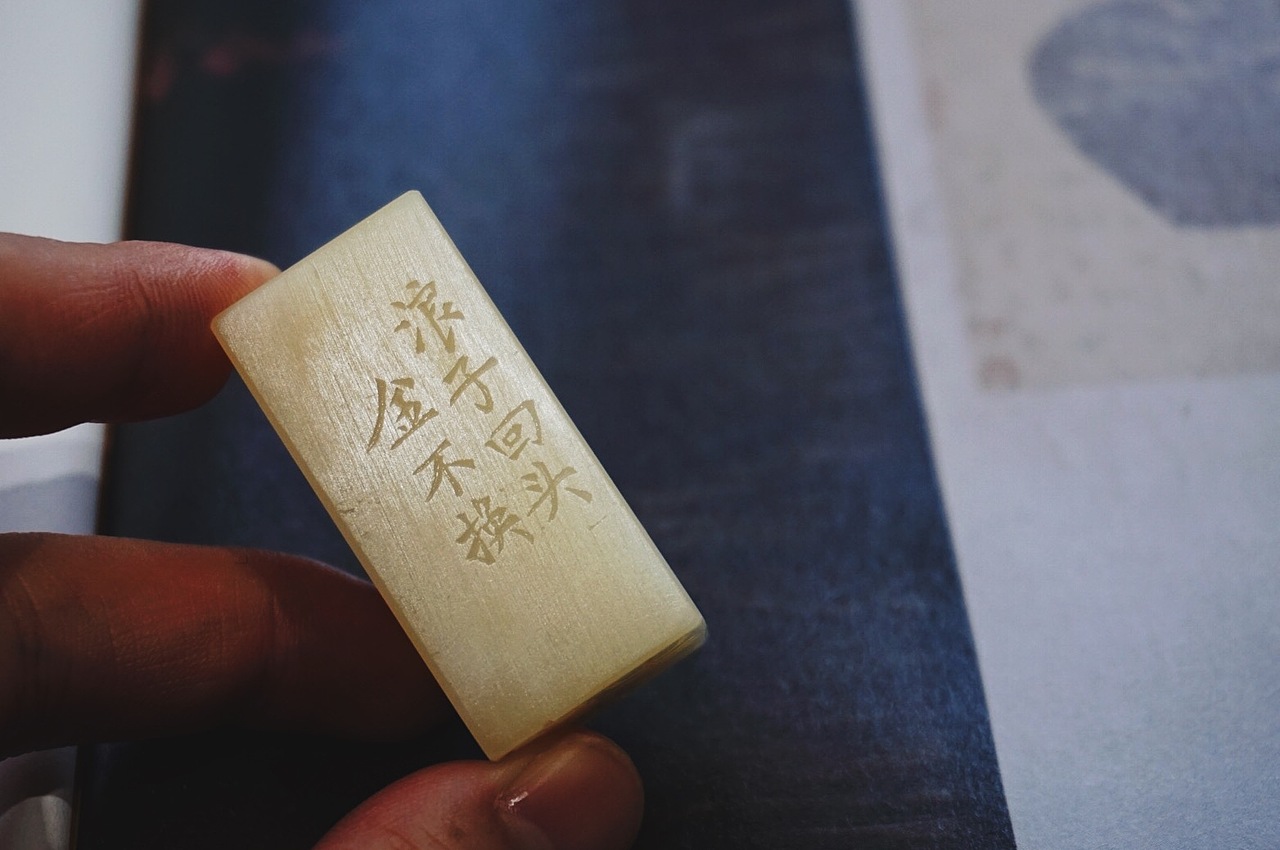 浪子回头
金不换